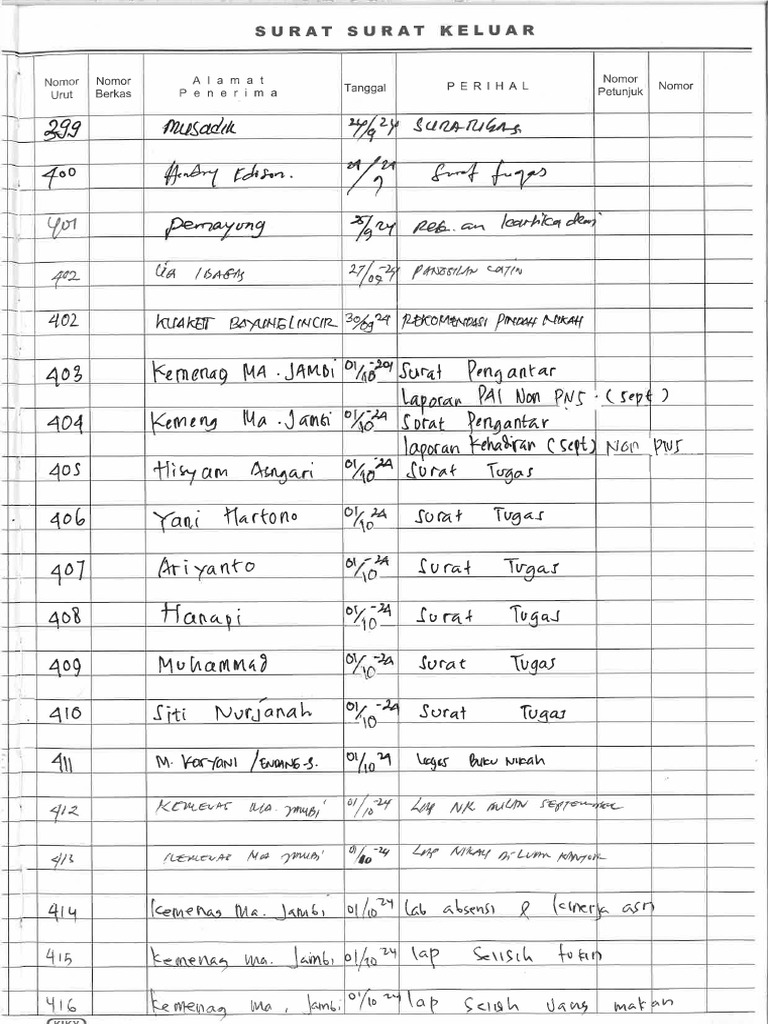 SURAT SURAT KELUAR
Nomor Urut Nomor Berkas Alamat Penerima Tanggal PERIHAL Nomor Petunjuk Nomor
399 Musadik 24/9 24 SURAT TUGAS
400 Hendry Edison. 24/9 24 Surat Tugas
401 Pemayung 25/9 24 Rek. an kartika dewi
402 27/09-24 PANGGILAN CATIN
402 KUAKEC BAYUNG LINCIR 30/09 24 REKOMENDASI PINDAH NIKAH
403 Kemenag MA. JAMBI 01/10 Surat Pengantar
Laporan PAI Non PNS. (Sept)
404 Kemeng Ma. Jambi 01/10-24 Surat Pengantar
laporan Kehadiran (Sept) Non PNS
405 Hisyam Asngari 01/10-24 Surat Tugas
406 Yani Hartono 01/10-24 Surat Tugas
407 Ariyanto 01/10-24 Surat Tugas
408 Hanapi 01/10-24 Surat Tugas
409 Muhammad 01/10-24 Surat Tugas
410 Siti Nurjanah 01/10-24 Surat Tugas
411 M. Koryani / ENDANG.S. 01/10 24 Legas Buku Nikah
412 KEMENAG MA. JAMBI 01/10-24 LAP NR BULAN SEPTEMBER
413 KEMENAG MA JAMBI 01/10-24 LAP NIKAH DI LUAR KANTOR
414 Kemenag Ma. Jambi 01/10 24 lab absensi & kinerja asn
415 kemenag ma. Jambi 01/10 24 lap Selisih tukin
416 Kemenag Ma, Jambi 01/10 24 lap uang makan
KIKY